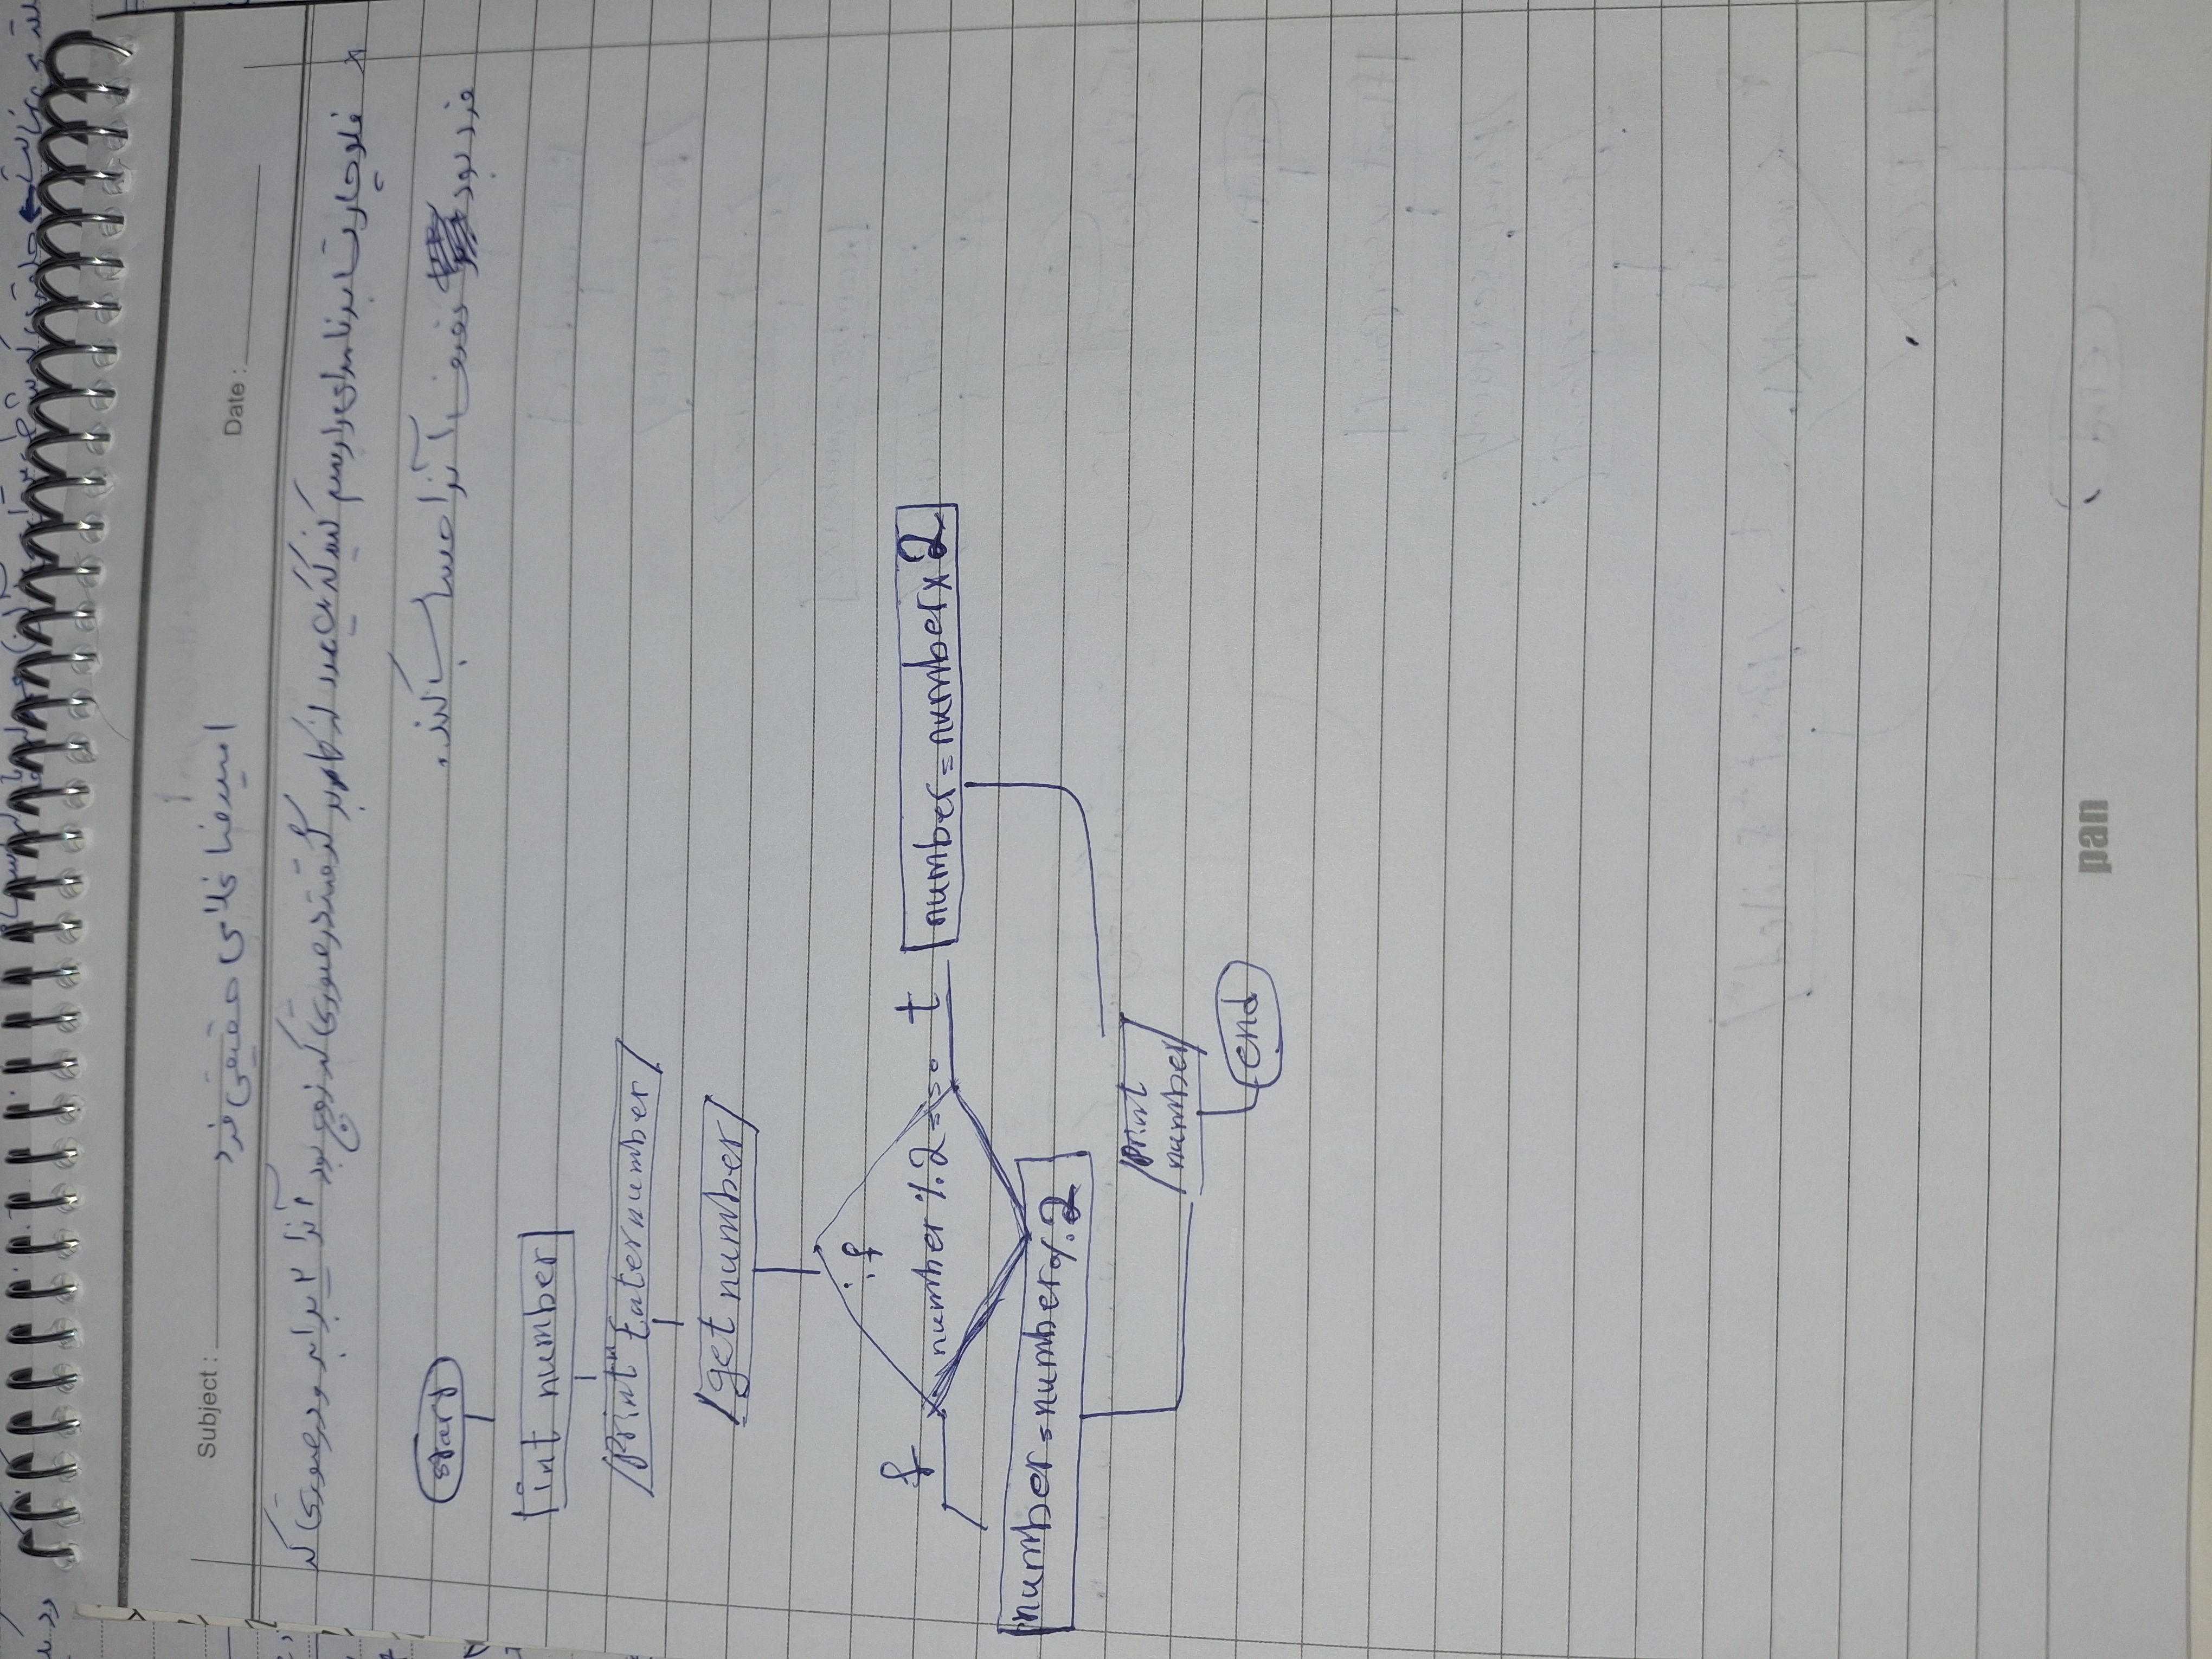 Subject :
امیررضا غلامی حقیقی فرد
Date :
* فلوچارت برنامه‌ای را رسم کنید که یک عدد از کاربر گرفته در صورتی که زوج بود آنرا ۲ برابر و در صورتی که
فرد بود نصف آنرا حساب کند.
start
int number
Print "Enter number
get number
if
number % 2 == 0
f
t
number = number x 2
number = number % 2
print
number
end
pan